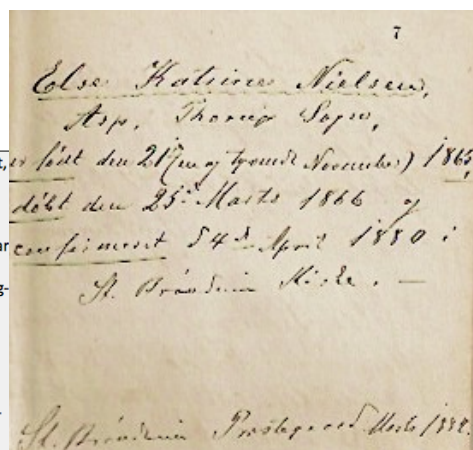 7
Else Katrine Nielsen,
Asp, Thorup Sogn,
t, er født den 21 (en og tyvende November) 1865,
døbt den 25d Marts 1866 og
ar confirmeret d 4d April 1880 i
g- St. Brøndum Kirke. —
St. Brøndum Præstegaard Marts